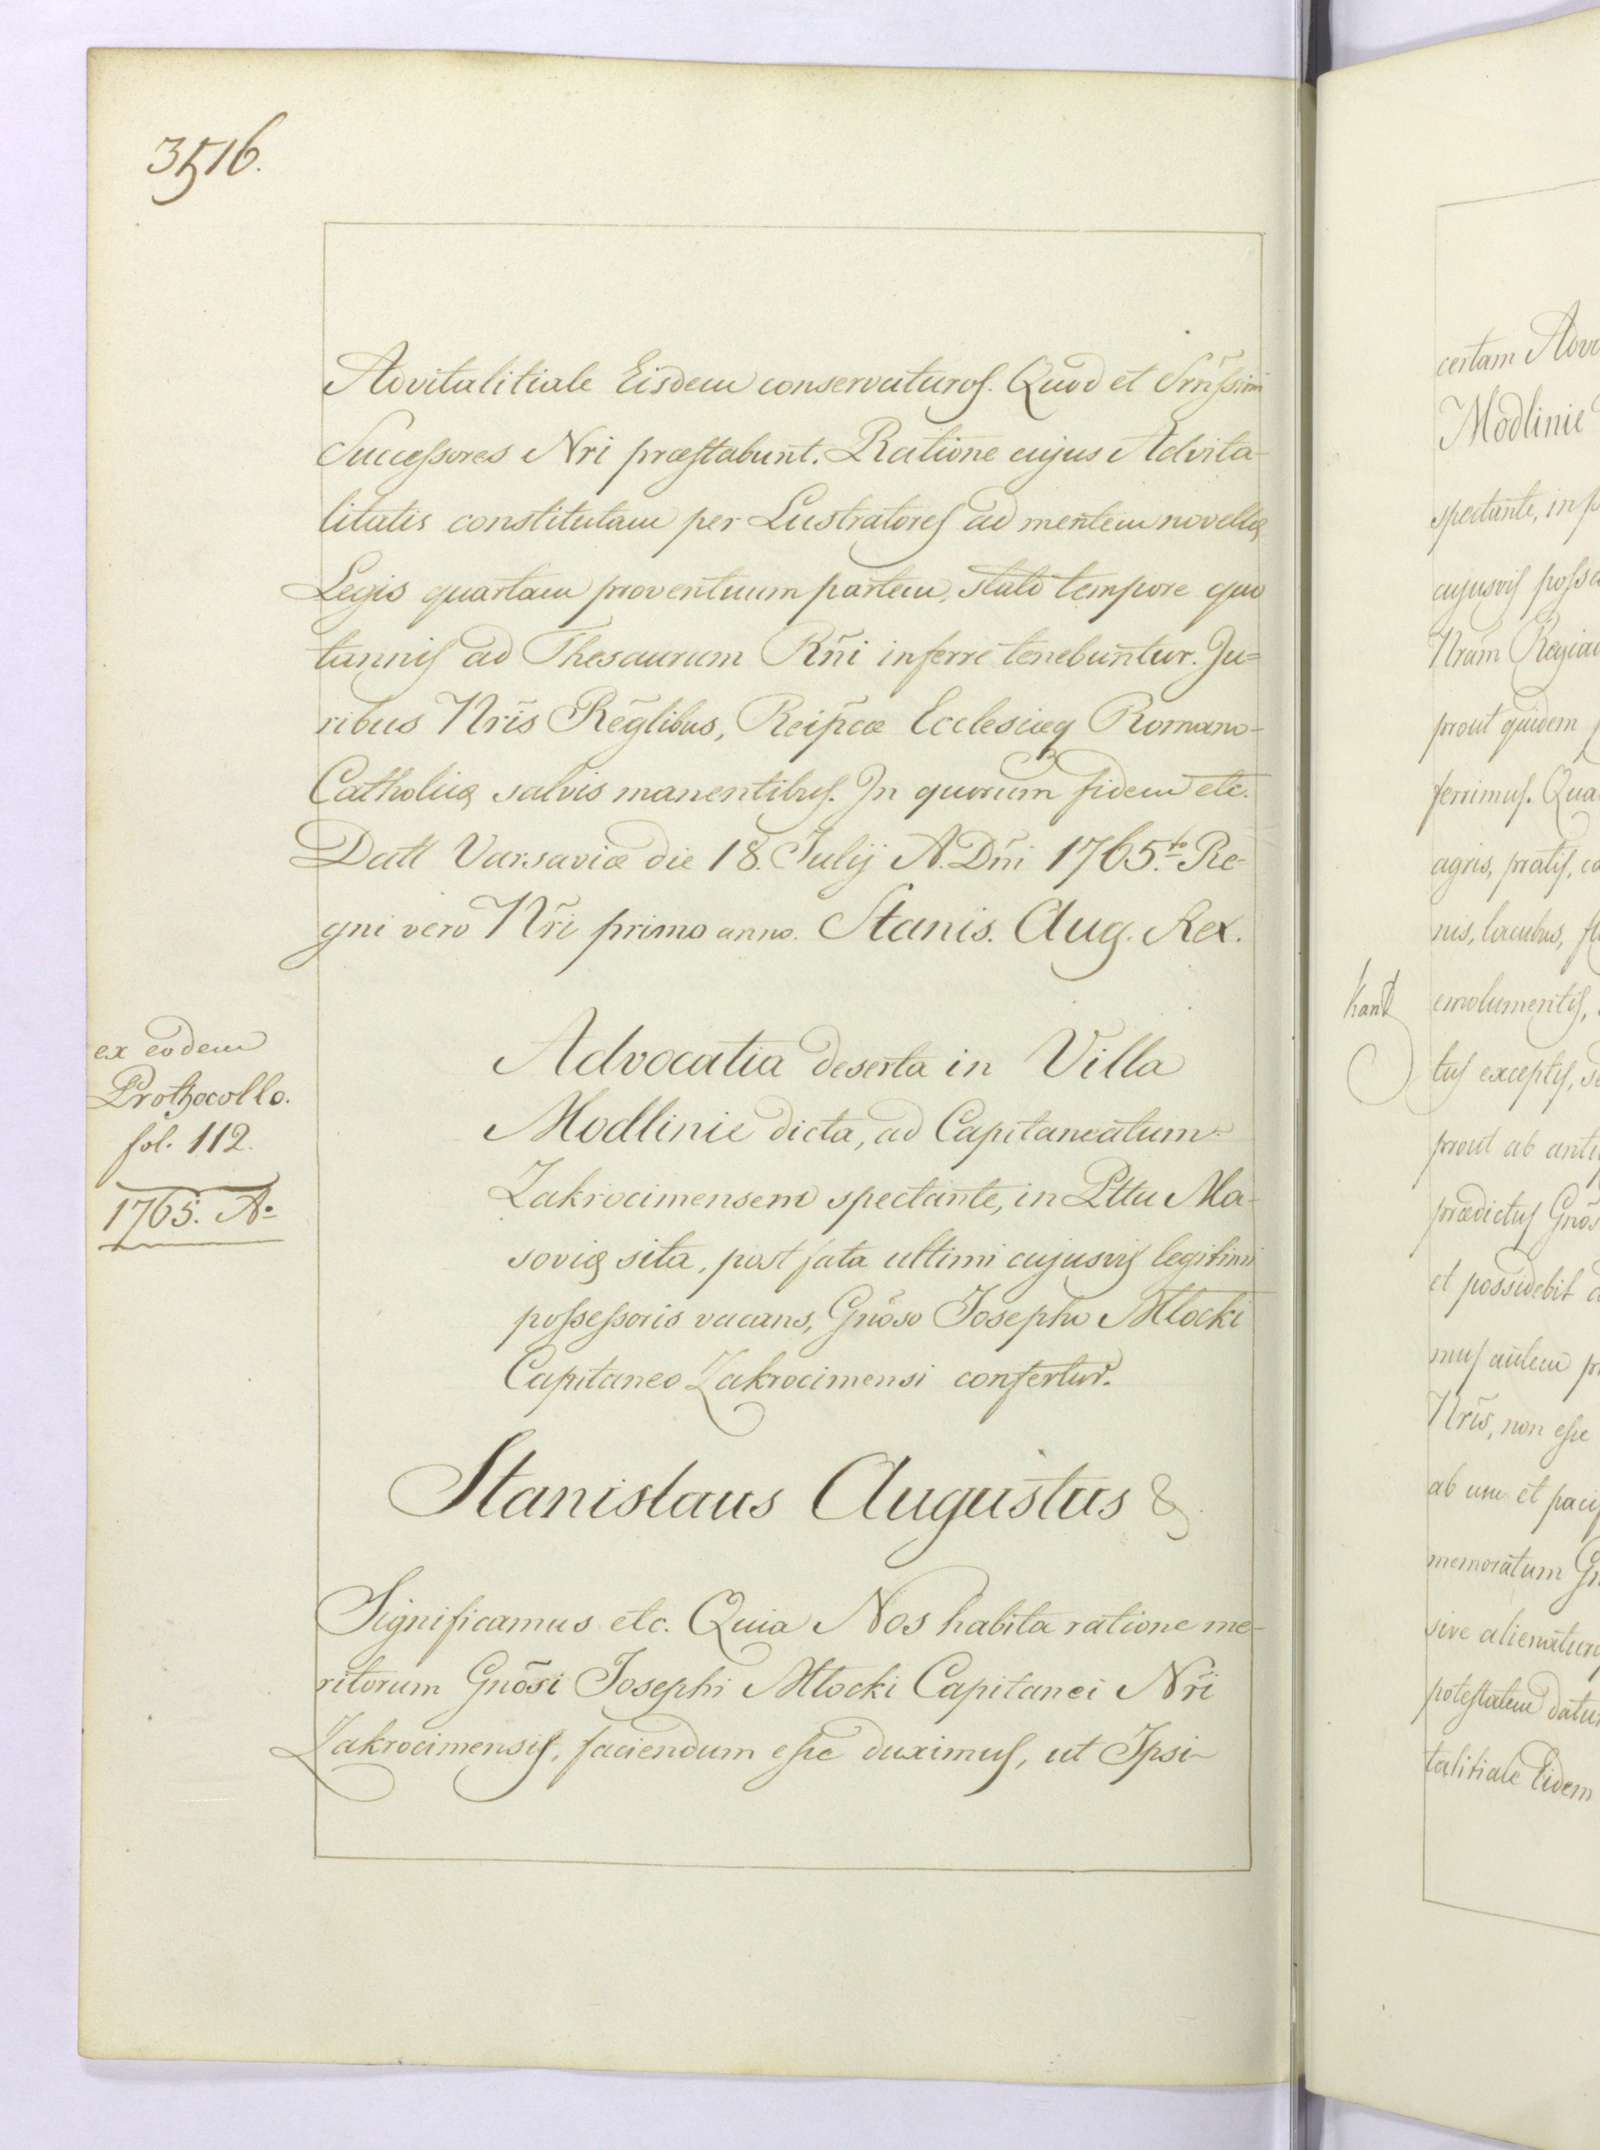 3516.
Advitalitiale Eisdem conservaturos. Quod et Srn̄ssimi
Successores Nri præstabunt. Ratione cujus Advita-
litatis constitutam per Lustratores ad mentem novellæ
Legis quartam proventuum partem, stato tempore quo
tannis ad Thesaurum Rn̄i inferre tenebuntur. Ju=
ribus Nr̄is Rēglibus, Reip̄cæ Ecclesiæq Romano-
Catholicæ salvis manentibus. In quorum fidem etc.
Datt Varsaviæ die 18. Julij A. Dn̄i 1765.to Re-
gni vero Nr̄i primo anno. Stanis. Aug. Rex.
ex eodem
Prothocollo.
fol. 112.
1765. Ao
Advocatia deserta in Villa
Modlinie dicta, ad Capitaneatum
Zakrocimensem spectante, in Pttu Ma-
soviæ sita, post fata ultimi cujusvis legitimi
possessoris vacans, Gnōso Josepho Mlocki
Capitaneo Zakrocimensi confertur.
Stanislaus Augustus &
Significamus etc. Quia Nos habita ratione me-
ritorum Gnōsi Josephi Mlocki Capitanei Nr̄i
Zakrocimensis, faciendum esse duximus, ut Ipsi
certam
Modlinie
spectante, in
cujusvis
Nram
prout quidem
ferrimus.
agris, pratis,
nis, lacubus,
emolumentis,
tus exceptis,
prout ab
prædictus
et possidebit
mus autem
Nris, non esse
ab usu et
memoratum
sive
potestatem
talitiale Eidem